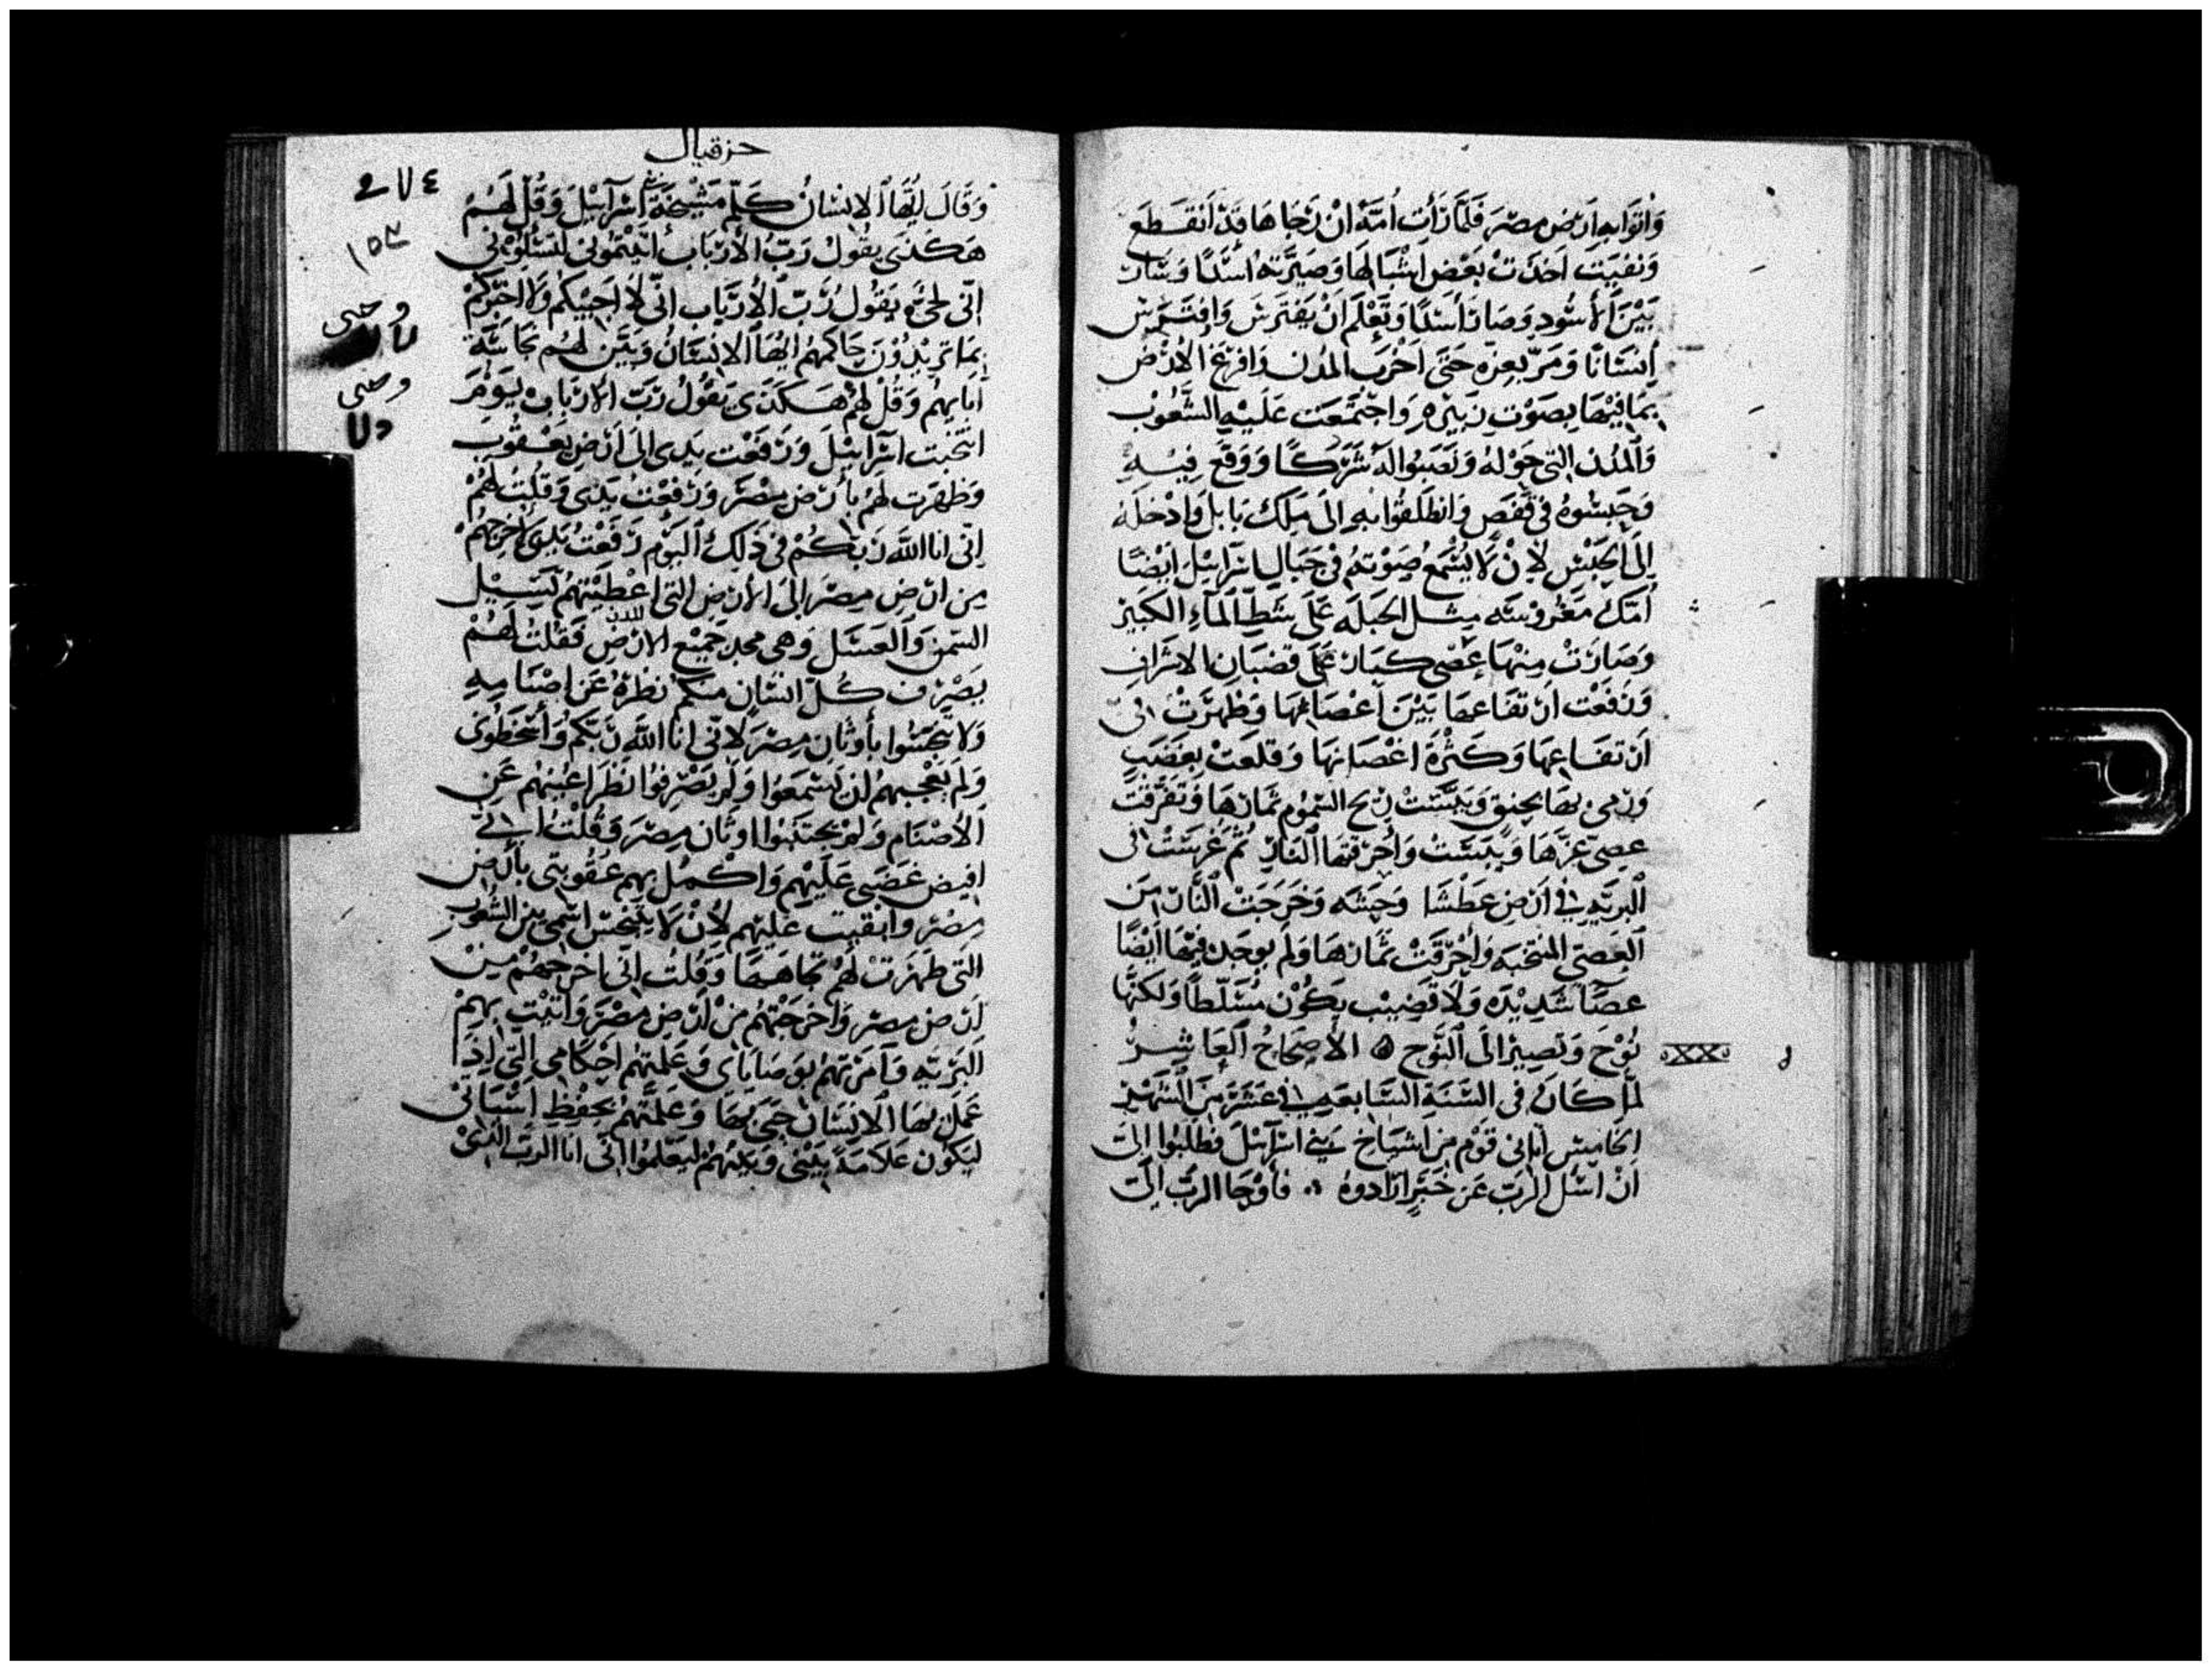 وَاتوَابه ارَض مصرَ فَلمَّا رَأت اُمّهَ ان رَجَاهَا قَدْ اَنقَطَع
وَنفيَت اَخذَتْ بَعْض اشْبَالهَا وَصَيرَته اسَدًا وَسَار
بَيْنَ الأسُودِ وَصَارَ أسَدًا وَتعْلَم اَنْ يَفتَرسَ وَافتَرسَ
اِنسَانًا وَمَرّ بعِزه حَتىَ اَخْرَب المدُن وَافرَغ الارْض
بمَا فيْهَا بصَوْت زَبيْره وَاجتَمعَت عَليْهِ الشَّعُوْب
وَالمدُن التى حَوْله وَنَصَبُوا لهَ شَرَكًا وَوَقعَ فِيْهِ
وَحَبسُوهُ فى قفَصٍ وَانطَلقُوا بهِ الىَ مَلِك بَابلَ وَادْخلهُ
اِلىَ الحَبْس لاِنْ لَا يُسْمعَ صَوْتهُ فى جَبَال اسرَائيْلَ ايْضًا
اُمّكَ مَغْروْسَه مِثل الحَبلَه عَلىَ شَطّ المآءِ الكَبيْر
وَصَارَتْ مِنهَا عِصْى كبَار عَلىَ قضبَان الاشرَاف
وَرَفعَت ارتفَاعهَا بَيْنَ اَغْصَانهَا وَظهَرَتْ الىّ
ارتفَاعهَا وَكَثْرة اغصَانهَا وَقلعَتْ بغَضَبٍ
وَرمىَ بهَا بحنق وَيبسَّتْ رِيح السّمُوم ثمَارهَا وَتفَرَّقتْ
عصِى عزّهَا وَيَبسَتْ وَاحْرَقتهَا النَار ثُمّ غرِسَتْ الى
البَريّه فى اَرْضٍ عَطْشا وَحبشَه وَخَرَجَتْ النَّار مِنَ
العصِى المنتخبَه وَاحْرَقَتْ ثمَارهَا وَلم يوجَد فيْهَا ايْضًا
عصَا شَديْدَه وَلَا قَضِيْب يَكُوْن مُسَلّطًا وَلكنّهَا
نُوْحَ وَتَصِيْر الىَ النَّوْح ۞ الأصحَاحُ العَاشِرُ
لمّا كَانَ فى السَّنَة السَّابعَه فى عَشرَ مِنَ الشّهْر
الخَامِس اتَانى قوْم مِن اشيَاخ بَني اسرَآئيْلَ فطَلبُوا الىَّ
اَنْ اسْئل الربّ عَن خَبَرٍ ارَادوهُ فأوْحَا الربّ الىّ
حزقيال
٢٧٤
١٥٣
وَقَالَ ايُّهَا الانسَانُ كَلّم مَشْيخَة اسْرآئيْلَ وَقُلْ لَهُمْ
هَكذَى يقُولْ رَبّ الأربَاب أتيْتُمُونى لتَسْئلوْنى
انّى لحىّ يقُول رَبّ الأربَاب انّى لَا اجيْبكم وَلَا اخبركمْ
بمَا تريْدُوْنَ حَاكمهُم ايُّهَا الانْسَانُ وَبَيَّن لهُم نجَاسَّة
ابَايهُم وَقُلْ لهُمْ هَكذَى يقُوْلُ رَبّ الاربَابْ يَوْمَ
انتخَبت اسَرائيْلَ وَرَفعْت يَدى الىَ ارْض يَعْقُوْب
وَظهَرت لهُمْ بأرْض مصْرَ وَرَفعْتُ يَدى وَقُلْتُ لهُمْ
اِنّى انا الله رَبكُمْ فى ذَلِكَ اليَوْم رَفعْتُ يَدى لاخرجهُمْ
مِن ارْض مِصْرَ اِلىَ الأرْض التى اعْطيْتهُمْ تَسِيْل
السّمن وَالعَسَل وَهى مجد جَميْع الارْض فَقُلتُ لهُمْ
يصْرف كُلّ انسَان منكُم نظرَهُ عَن اصْنَامِهِ
وَلَا تنجّسُوا بأوثَان مصْرَ لانّى انا اللهَ رَبّكُم وَأسْخَطُوْنى
وَلم يُعْجبهُم ان يَسْمَعُوا وَلم يَصْرِفوُا نَظرَ اعْيُنهُم عَن
الأصْنَام وَلم يجتَنبُوا اوثَان مِصْرَ وَقُلْتُ انى
افيض غَضَبى عَليْهم وَاكمل بهم عقُوبتى بأرض
مِصْر وَابقيت عليْهم لأنْ لَا يتنجّس اسمى بين الشُعُوب
التى ظهَرَتْ لهُمْ تجاههَا وَقُلْتُ انّى اخرجهُم مِنْ
ارْض مِصْر وَاخرَجْتهُم مِنْ ارْض مِصْرَ وَاتيْت بهِمْ
البَريّه وَأمَرْتهُم بوَصَايَاى وَعَلمتهُم احكَامى التِى اِذَا
عَمل بهَا الانسَان حَيىَ بهَا وَعَلمْتهُمْ بحِفْظِ اسْبَاتى
ليَكوُن عَلامَة بَيْنى وَبَيْنهُمْ ليَعْلمُوا انّى انا الربّ الذىْ